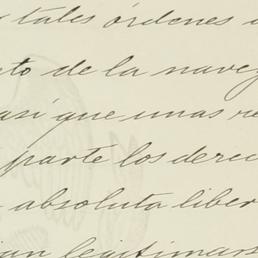 tales órdenes
to de la naveg
así que unas re
parte los derec
absoluta liber
legitimars